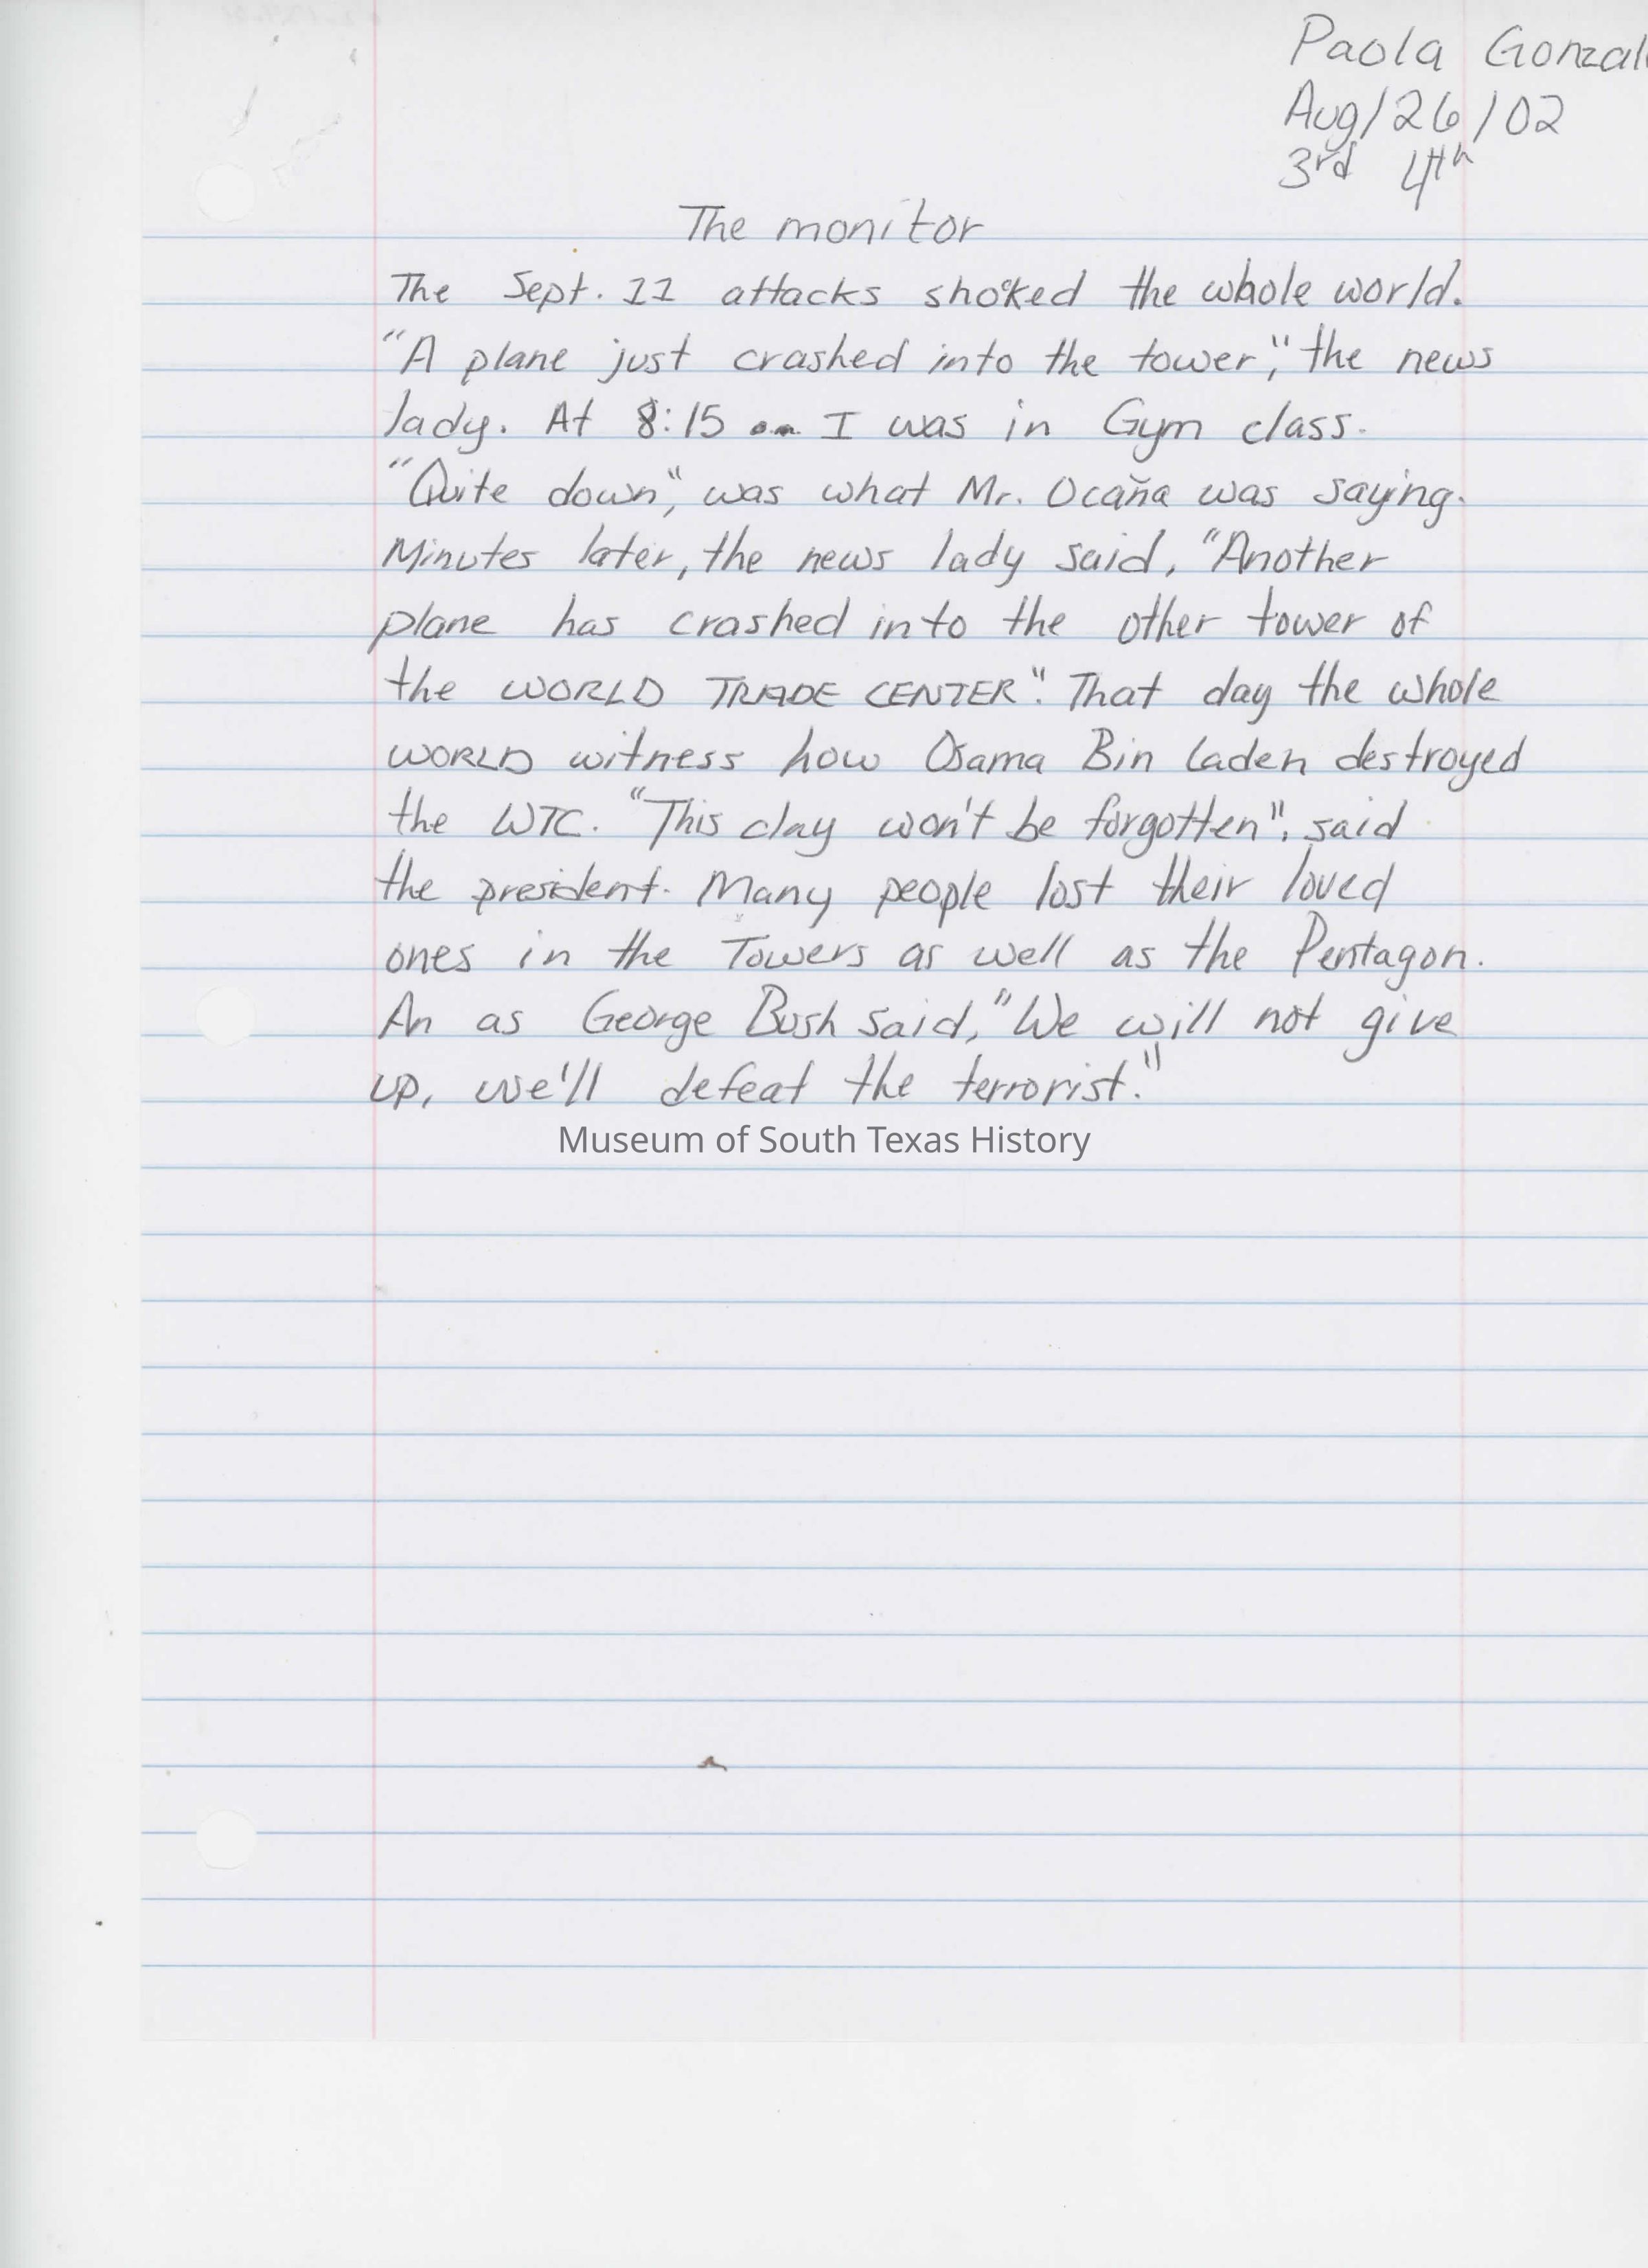 Paola Gonzal
Aug/26/02
3rd 4th
The monitor
The Sept. 11 attacks shoked the whole world.
"A plane just crashed into the tower", the news
lady. At 8:15 I was in Gym class.
"Quite down", was what Mr. Ocaña was saying.
Minutes later, the news lady said, "Another
plane has crashed into the other tower of
the WORLD TRADE CENTER". That day the whole
WORLD witness how Osama Bin Laden destroyed
the WTC. "This day won't be forgotten", said
the president. Many people lost their loved
ones in the Towers as well as the Pentagon.
An as George Bush said, "We will not give
up, we'll defeat the terrorist."
Museum of South Texas History